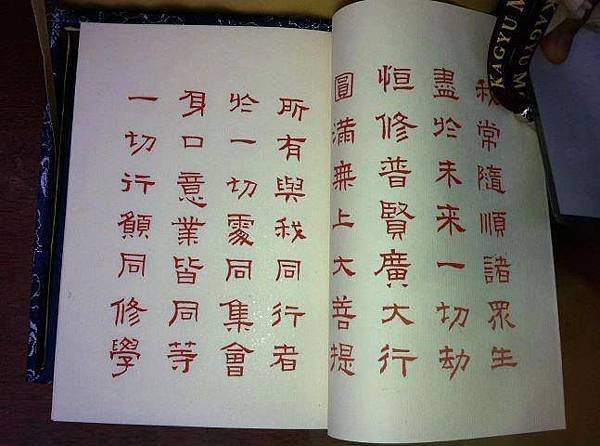 我常隨順諸眾生
盡於未來一切劫
恒修普賢廣大行
圓滿無上大菩提
所有與我同行者
於一切處同集會
身口意業皆同等
一切行願同修學
KAGYU M
KAGYU M